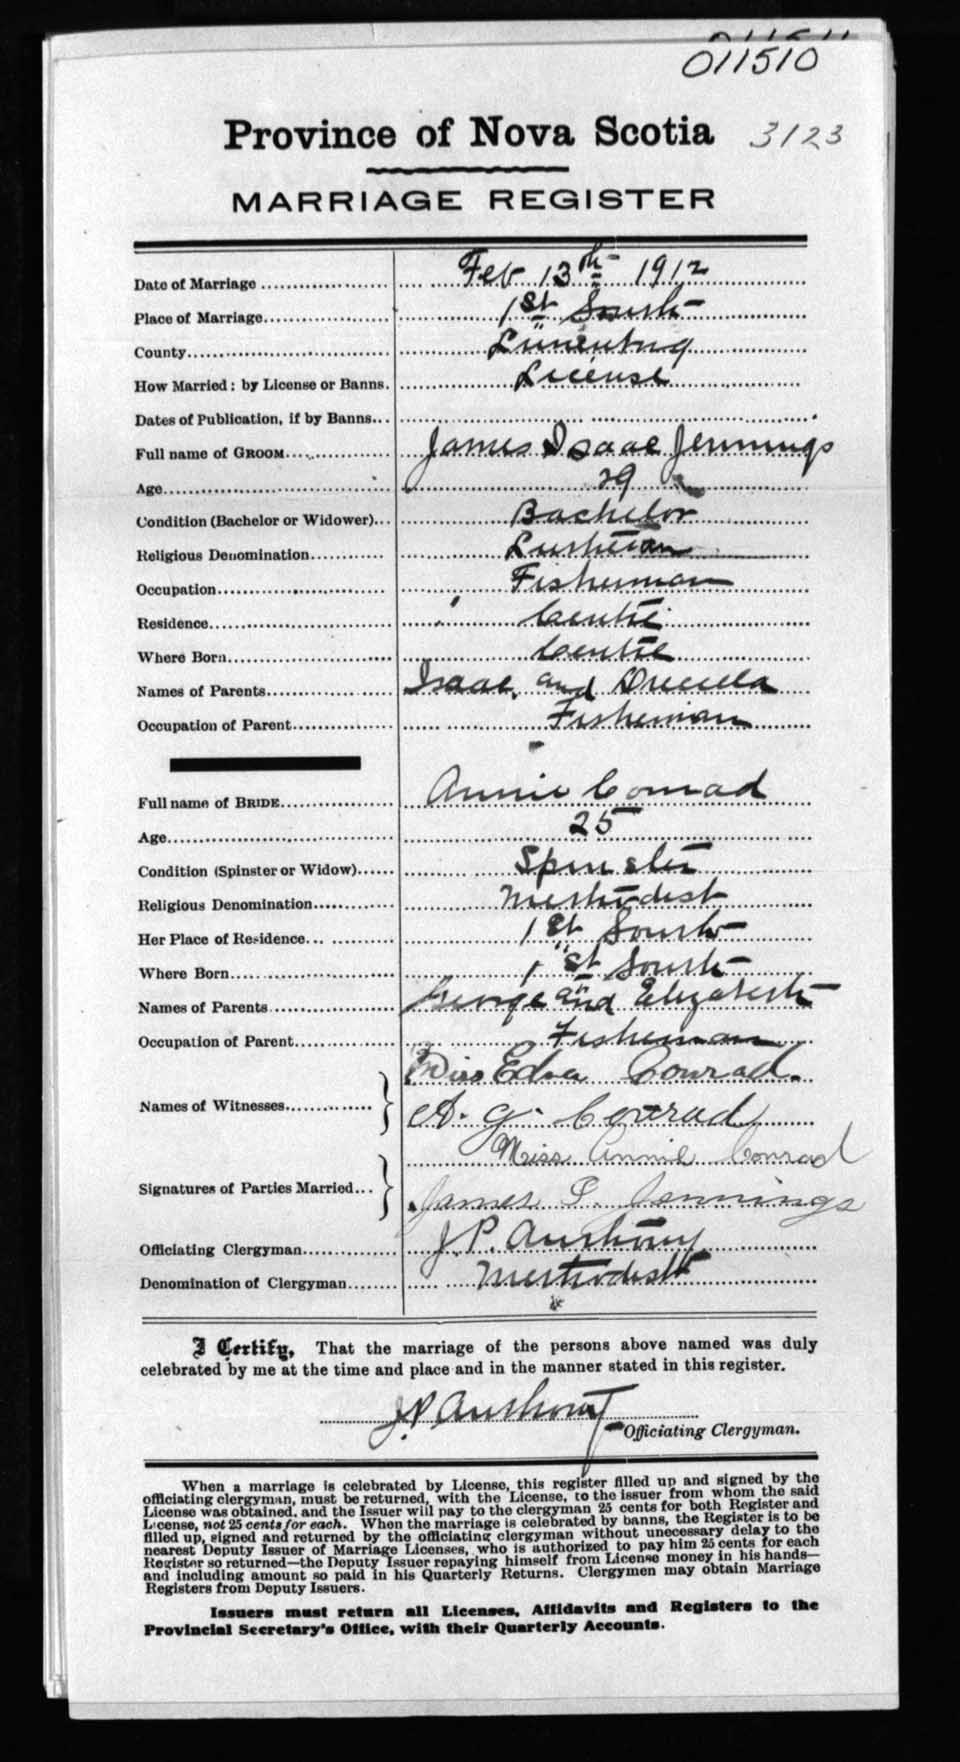 011510
Province of Nova Scotia 3123
MARRIAGE REGISTER
Date of Marriage Feb 13th 1912
Place of Marriage 1st South
County Lunenburg
How Married: by License or Banns. License
Dates of Publication, if by Banns
Full name of GROOM James Isaac Jennings
Age 29
Condition (Bachelor or Widower) Bachelor
Religious Denomination Lutheran
Occupation Fisherman
Residence Centre
Where Born Centre
Names of Parents Isaac and Drucella
Occupation of Parent Fisherman
Full name of BRIDE Annie Conrad
Age 25
Condition (Spinster or Widow) Spinster
Religious Denomination Methodist
Her Place of Residence 1st South
Where Born 1st South
Names of Parents George and Elizabeth
Occupation of Parent Fisherman
Miss Edna Conrad
Names of Witnesses
A. G. Conrad
Miss Annie Conrad
Signatures of Parties Married
James I. Jennings
Officiating Clergyman J. P. Anthony
Denomination of Clergyman Methodist
I Certify, That the marriage of the persons above named was duly
celebrated by me at the time and place and in the manner stated in this register.
J. P. Anthony
Officiating Clergyman.
When a marriage is celebrated by License, this register filled up and signed by the
officiating clergyman, must be returned, with the License, to the issuer from whom the said
License was obtained, and the Issuer will pay to the clergyman 25 cents for both Register and
License, not 25 cents for each. When the marriage is celebrated by banns, the Register is to be
filled up, signed and returned by the officiating clergyman without unecessary delay to the
nearest Deputy Issuer of Marriage Licenses, who is authorized to pay him 25 cents for each
Register so returned—the Deputy Issuer repaying himself from License money in his hands—
and including amount so paid in his Quarterly Returns. Clergymen may obtain Marriage
Registers from Deputy Issuers.
Issuers must return all Licenses, Affidavits and Registers to the
Provincial Secretary's Office, with their Quarterly Accounts.